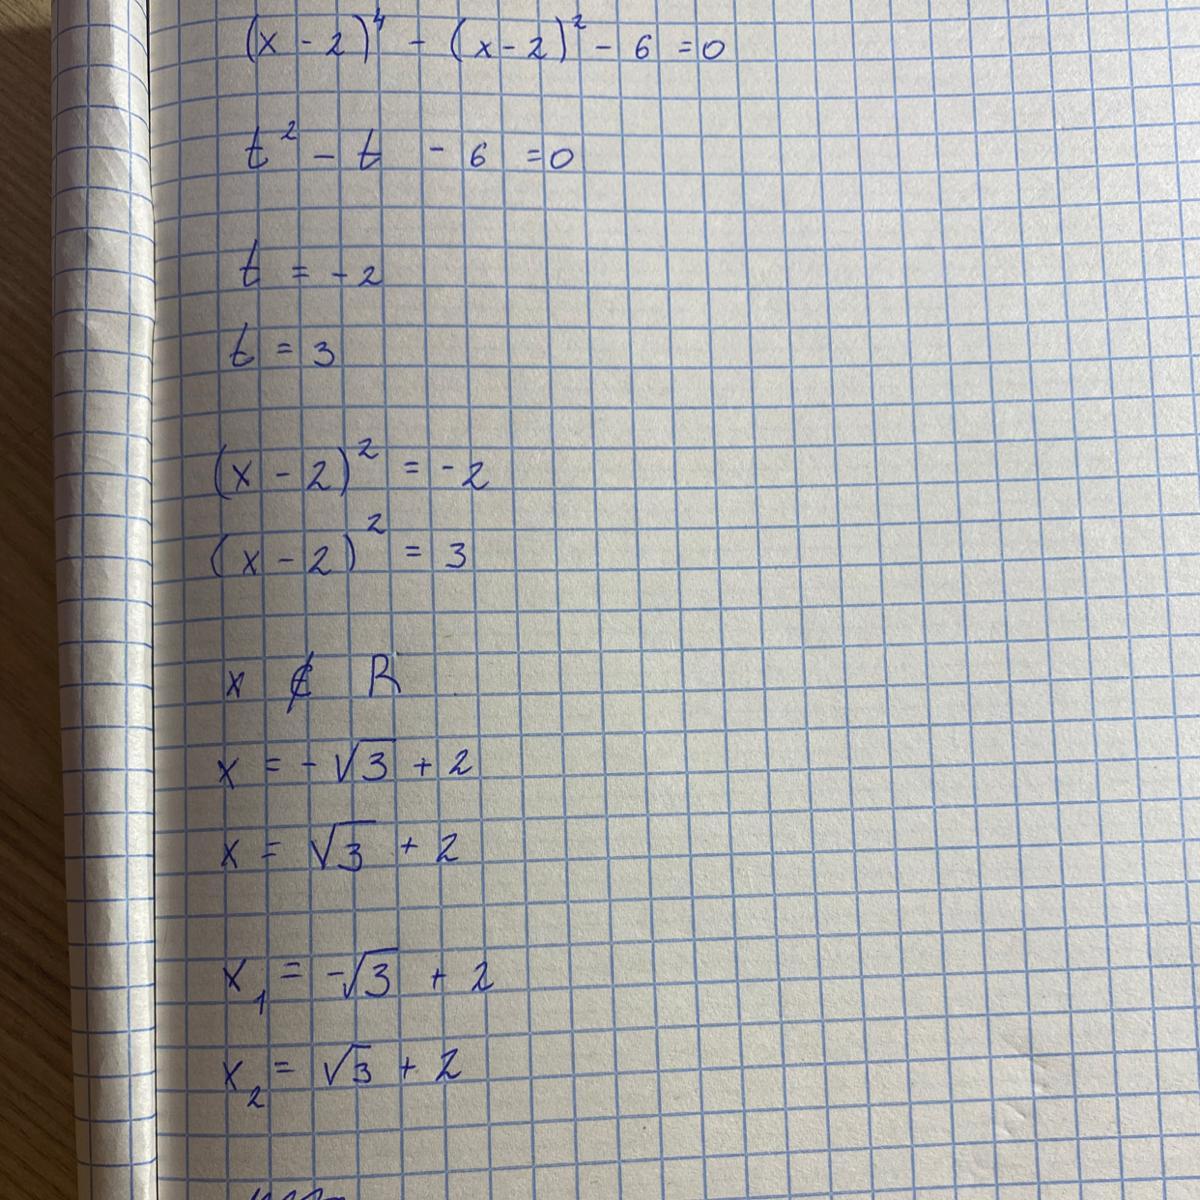 (x - 2)⁴ - (x - 2)² - 6 = 0
t² - t - 6 = 0
t = -2
t = 3
(x - 2)² = -2
(x - 2)² = 3
x ∉ R
x = -√3 + 2
x = √3 + 2
x₁ = -√3 + 2
x₂ = √3 + 2